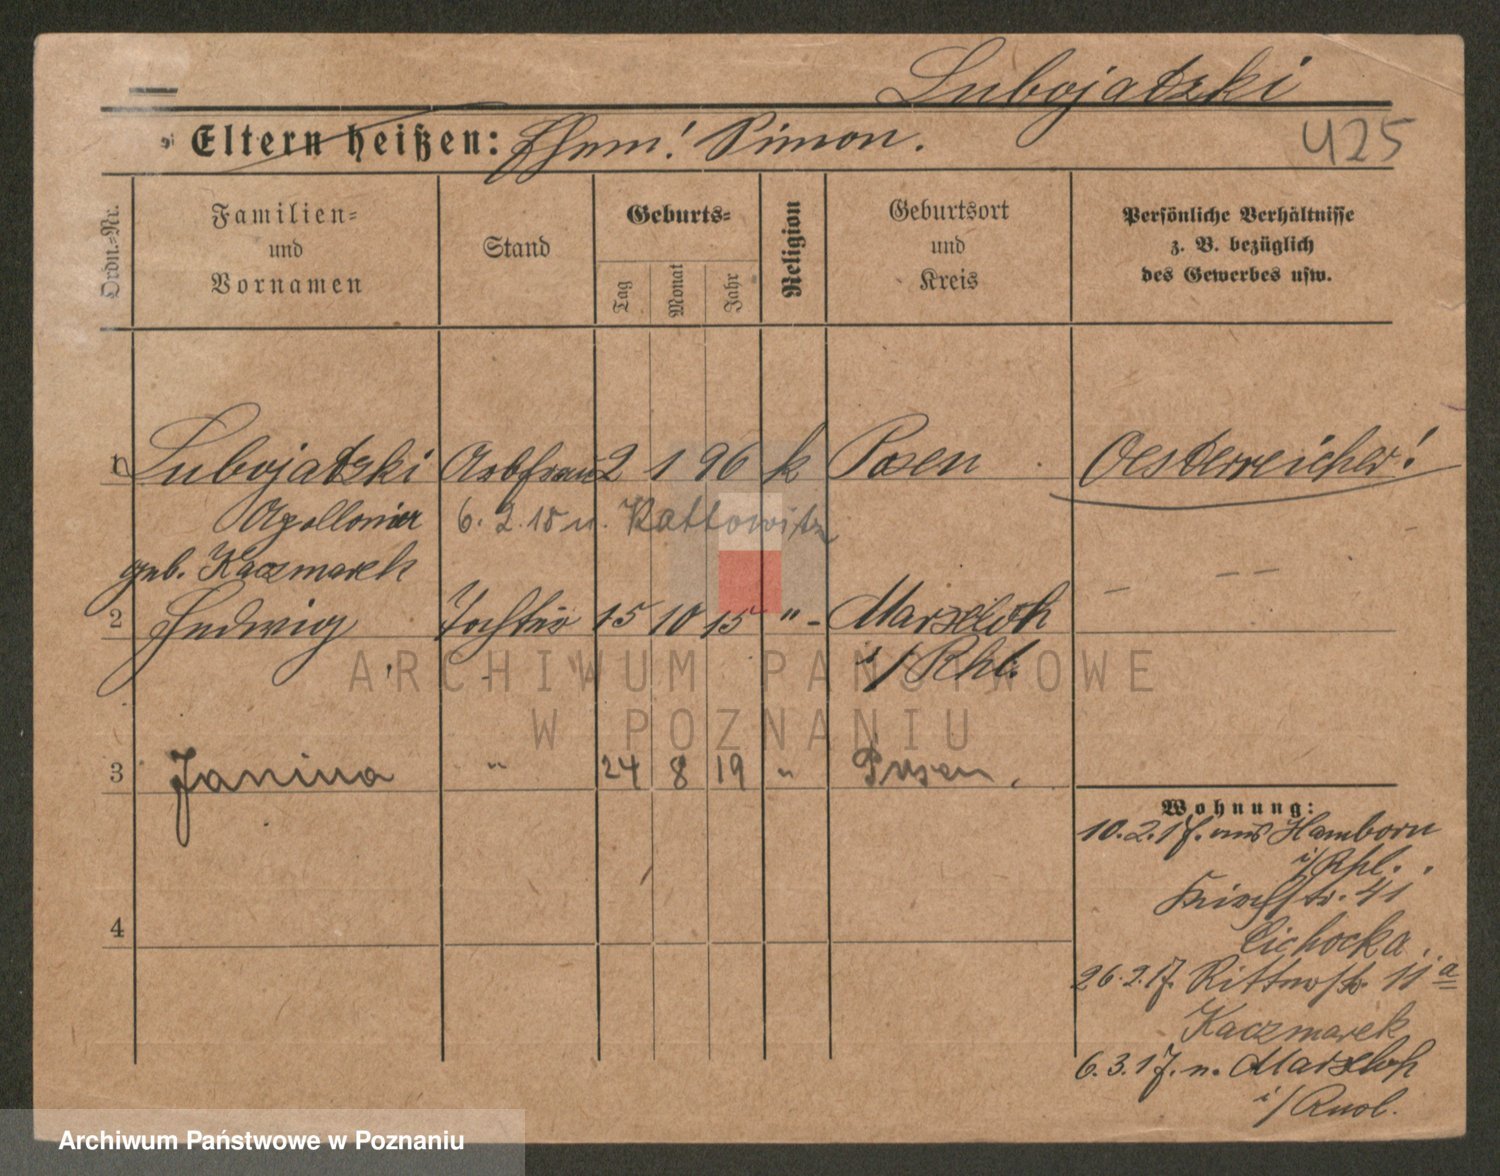 Lubojatzki
Eltern heißen: Ehem! Simon.
425
Ordn.-Nr.
Familien-
und
Vornamen
Stand
Geburts-
Tag
Monat
Jahr
Religion
Geburtsort
und
Kreis
Persönliche Verhältnisse
z. B. bezüglich
des Gewerbes usw.
1 Lubojatzki Arbfrau 2 1 96 k Posen Oesterreicher!
Apollonia 6. 2. 18 n. Kattowitz
geb. Kaczmarek
2 Hedwig Tochter 15 10 15 " - Marxloh
i/Rhl.
3 Janina " 24 8 19 " Posen
4
Wohnung:
10.2.17. aus Hamborn
i/Rhl.
41
Cichocka
26.2.17. Ritterstr. 11a
Kaczmarek
6.3.17. n. Marxloh
i/
ARCHIWUM PAŃSTWOWE
W POZNANIU
Archiwum Państwowe w Poznaniu